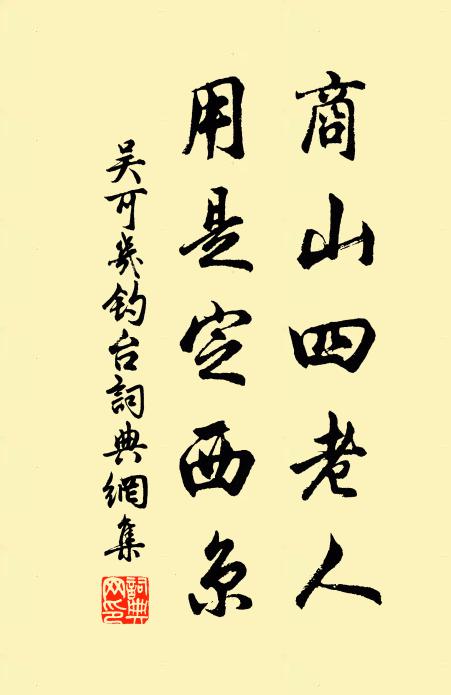 商山四老人
用是定西京
吴可幾钓台詞典網集
詞典網印